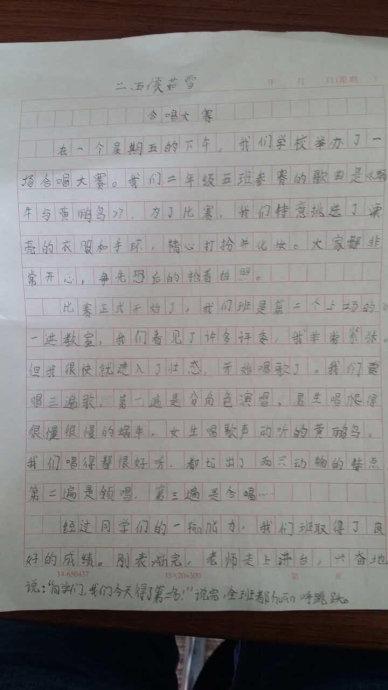 二五侯茹雪 年 月 日(星期 )
合唱大赛
在一个星期五的下午，我们学校举办了一
场合唱大赛。我们二年级五班参赛的歌曲是《蜗
牛与黄鹂鸟》，为了比赛，我们特意挑选了漂
亮的衣服和手环，精心打扮并化妆。大家都非
常开心，争先恐后的抢着拍照。
比赛正式开始了，我们班是第二个上场的。
一进教室，我们看见了许多评委，我非常紧张。
但我很快就进入了状态，开始唱歌了。我们要
唱三遍歌，第一遍是分角色演唱，男生唱
很慢很慢的蜗牛，女生唱歌声动听的黄鹂鸟。
我们唱得都很好听，都唱出了两只动物的特点
第二遍是领唱，第三遍是合唱…
经过同学们的一致努力，我们班取得了良
好的成绩。刚表演完，老师走上讲台，兴奋地
说："同学们，我们今天得了第二名！"说完，全班都 呼跳跃。